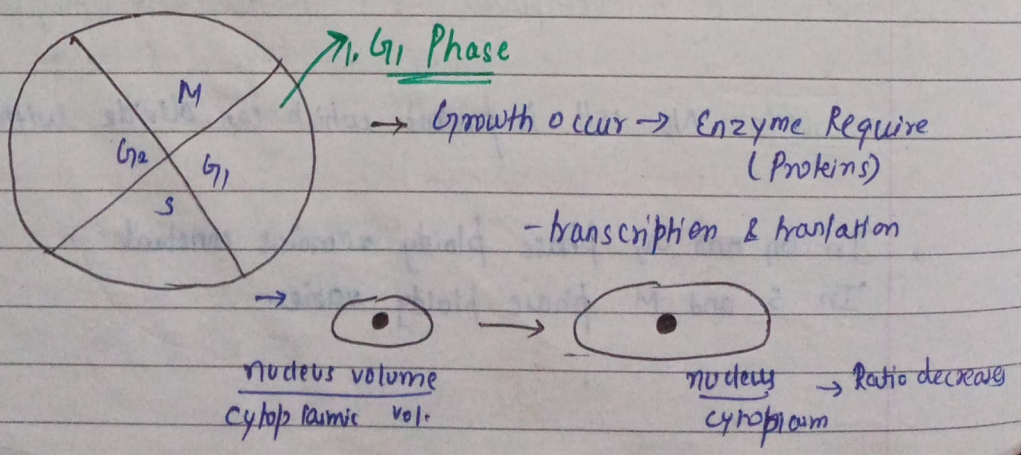 1. G1 Phase
M
G2
G1
S
→ Growth occur → Enzyme Require
(Proteins)
- transcription & tranlation
→
nucleus volume
cytoplasmic vol.
→
nucleus
cytoplasm
→ Ratio decreases